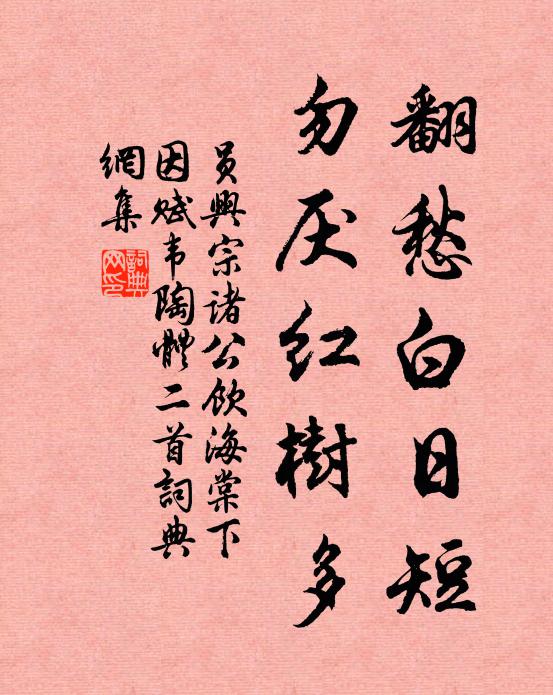 翻愁白日短
勿厌红樹多
员興宗诸公飲海棠下
因赋韦陶體二首詞典
網集
詞典網印